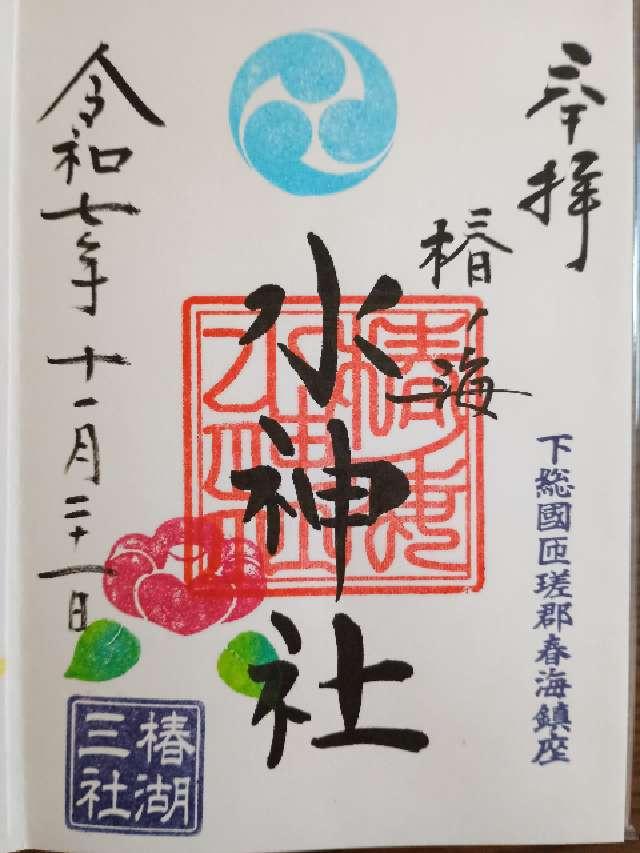 奉拝
下総國匝瑳郡春海鎮座
椿ノ海
水神社
令和七年十一月二十一日
椿湖
三社